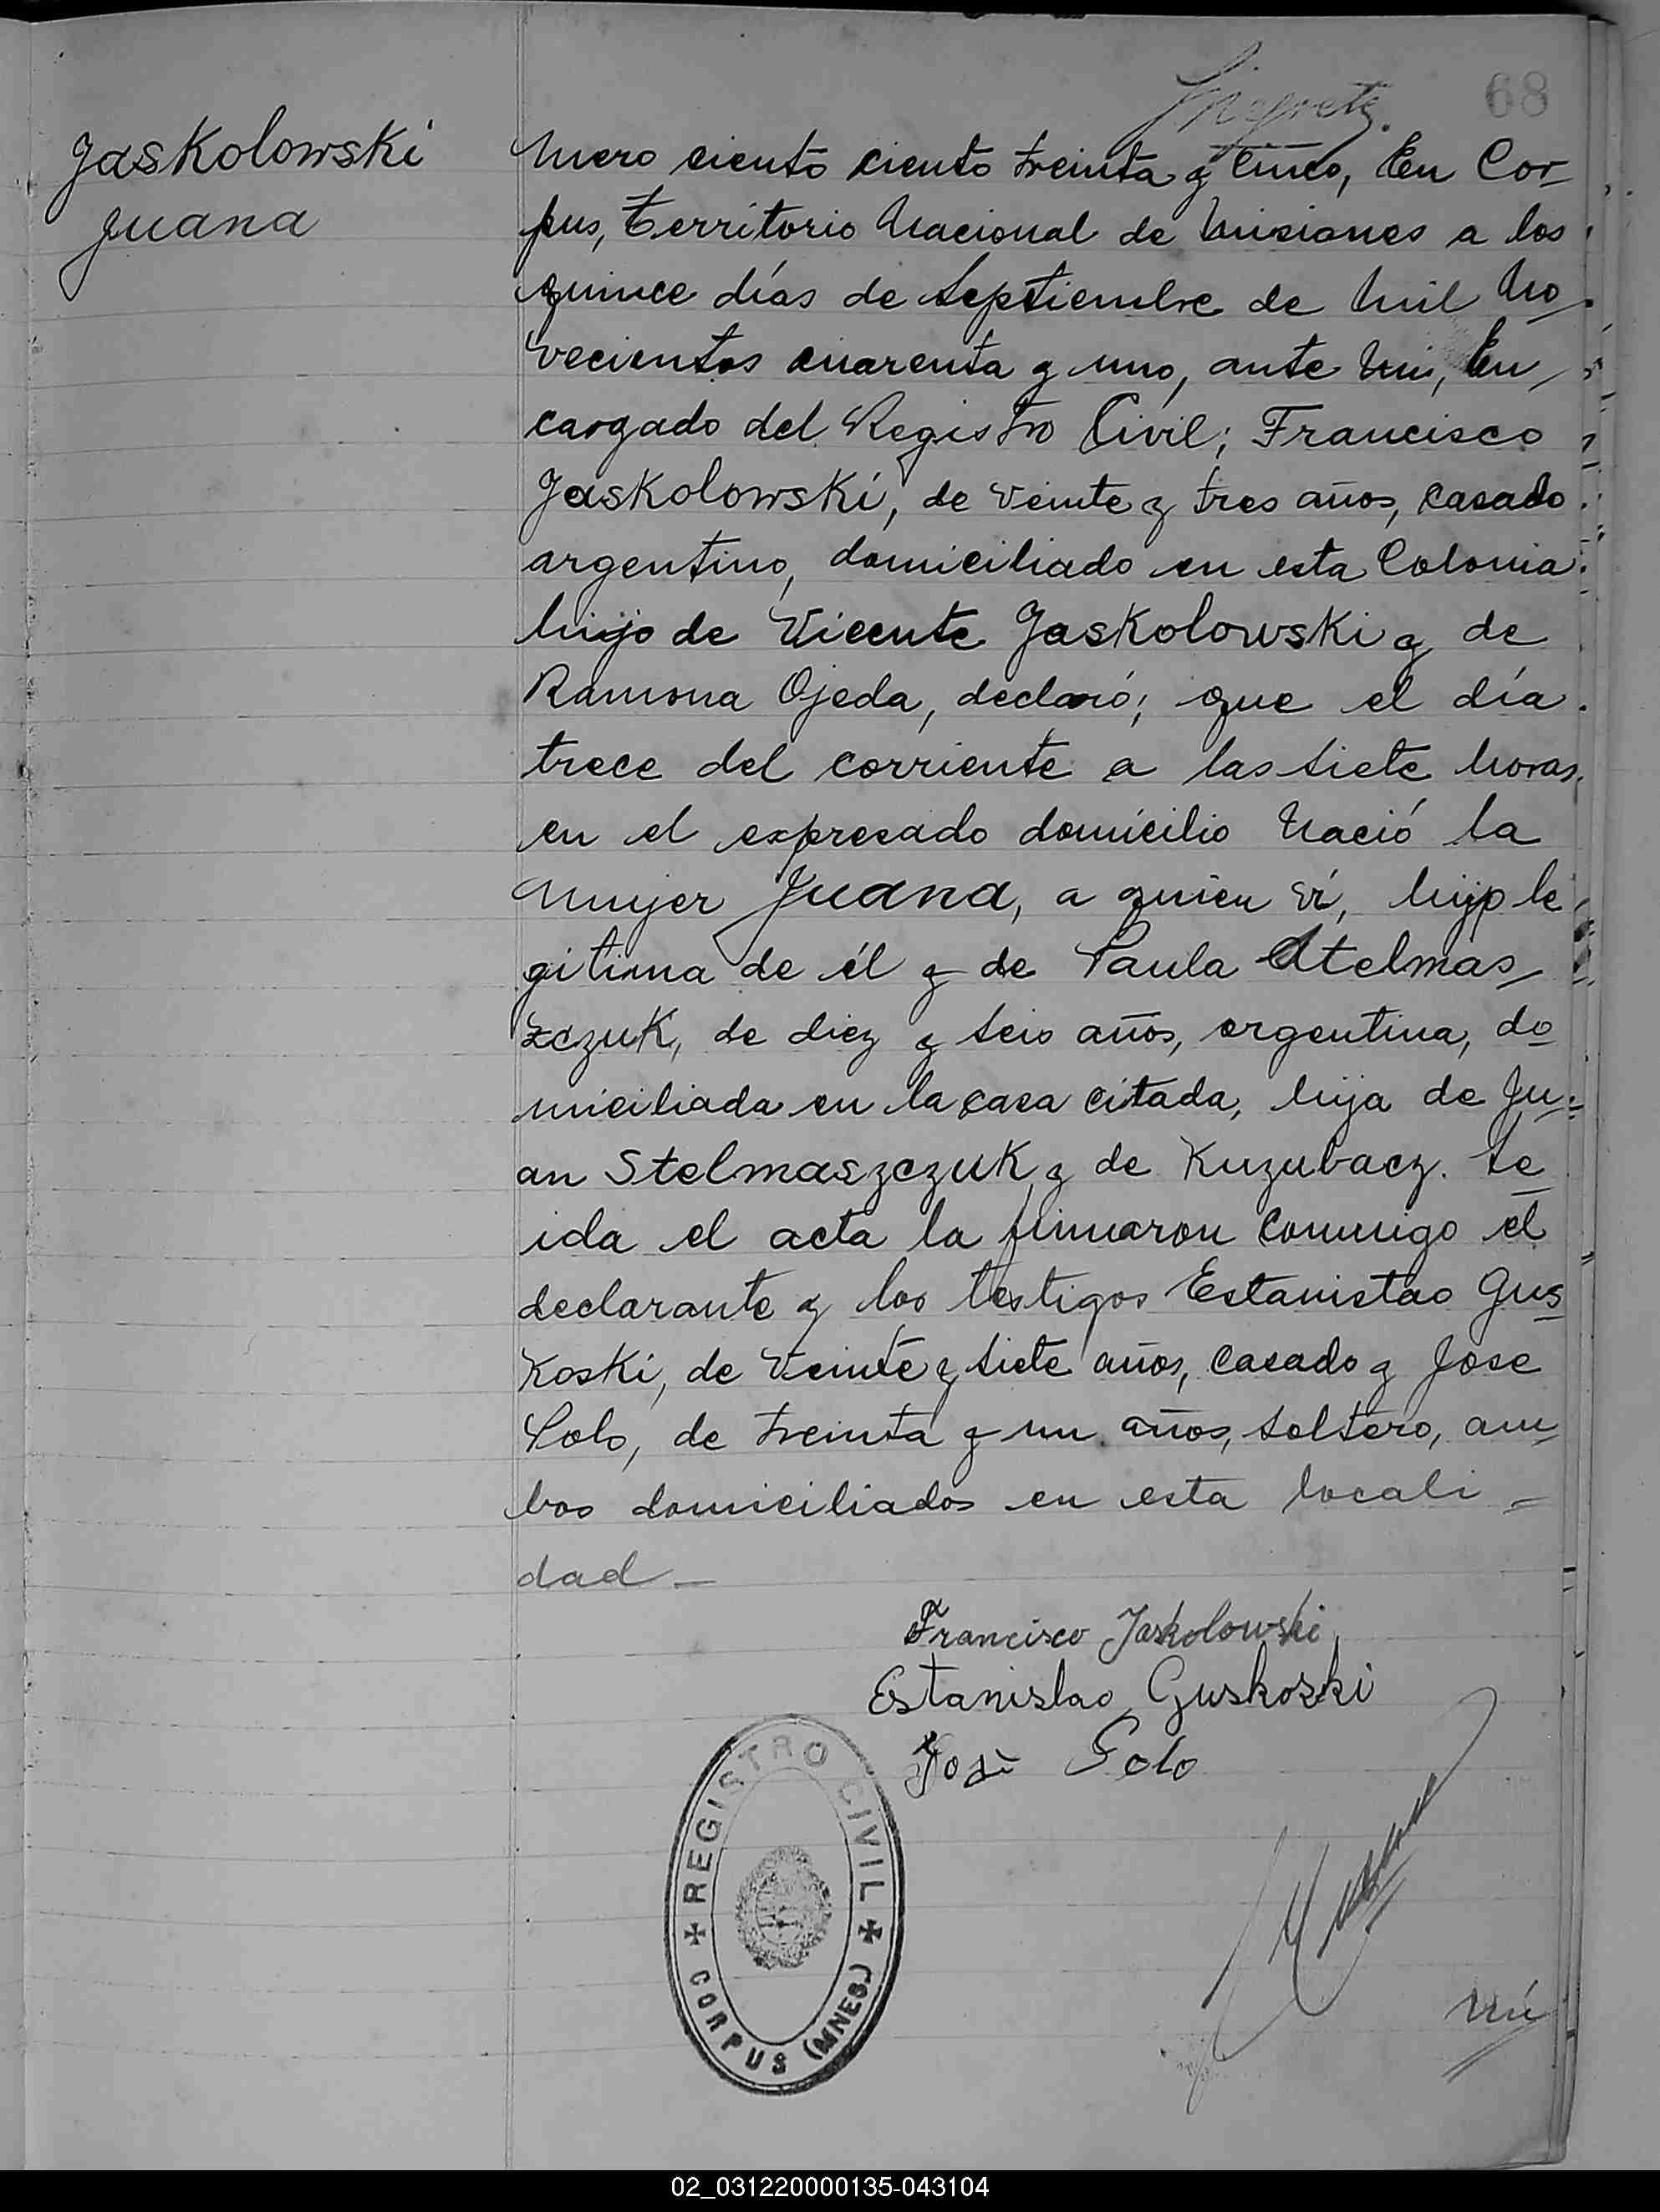 68
Jaskolowski
Juana
mero ciento ciento treinta y cinco, En Cor-
pus, Territorio Nacional de Misiones a los
quince días de Septiembre de mil no-
vecientos cuarenta y uno, ante mi, En-
cargado del Registro Civil; Francisco
Jaskolowski, de veinte y tres años, casado
argentino, domiciliado en esta Colonia
hijo de Vicente Jaskolowski y de
Ramona Ojeda, declaró; que el día
trece del corriente a las siete horas,
en el expresado domicilio nació la
mujer Juana, a quien vi, hija le-
gitima de él y de Paula Stelmas-
zczuk, de diez y seis años, argentina, do-
miciliada en la casa citada, hija de Ju-
an Stelmaszczuk y de Kuzubacz. Le-
ida el acta la firmaron conmigo el
declarante y los testigos Estanistao Gus-
koski, de veinte y siete años, casado y Jose
Solo, de treinta y un años, soltero, am-
bos domiciliados en esta locali-
dad -
Francisco Jaskolowski
Estanislao Guskoski
José Solo
REGISTRO CIVIL
CORPUS (MNES.)
nú
02_031220000135-043104